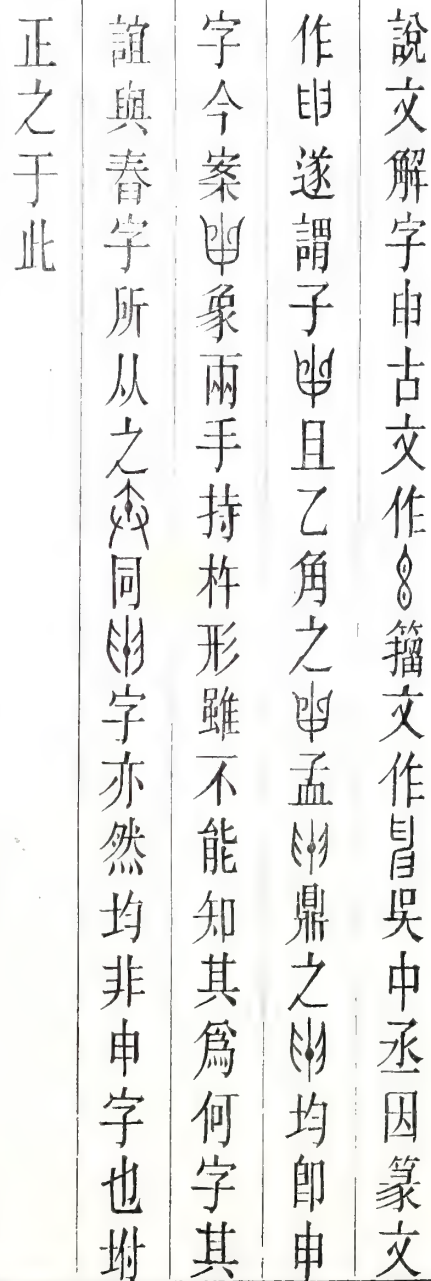 說文解字申古文作籀文作吳中丞因篆文
作遂謂子且乙角之孟鼎之均卽申
字今案象兩手持杵形雖不能知其爲何字其
誼與舂字所从之同字亦然均非申字也坿
正之于此